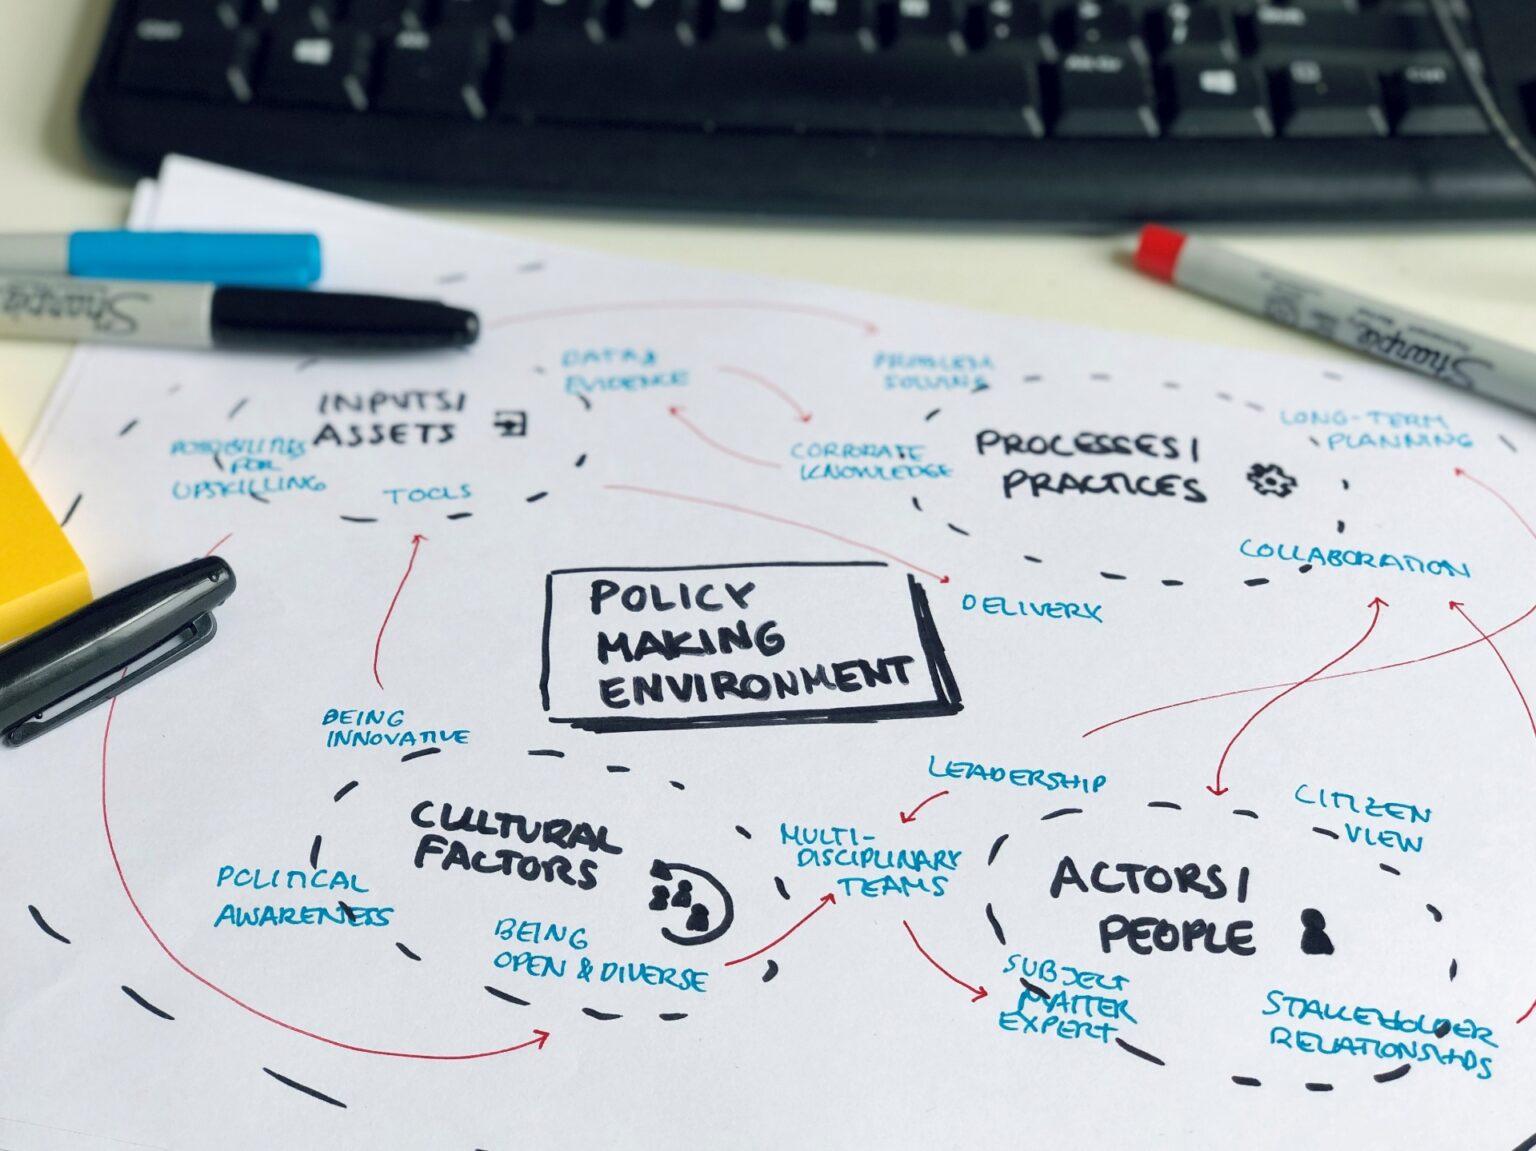 Sharpie
Sharpie
INPUTS/
ASSETS
DATA &
EVIDENCE
POSSIBILITIES
FOR
UPSKILLING
TOOLS
PROBLEM
SOLVING
CORPORATE
KNOWLEDGE
PROCESSES/
PRACTICES
LONG-TERM
PLANNING
COLLABORATION
DELIVERY
POLICY
MAKING
ENVIRONMENT
BEING
INNOVATIVE
CULTURAL
FACTORS
POLITICAL
AWARENESS
BEING
OPEN & DIVERSE
LEADERSHIP
MULTI-
DISCIPLINARY
TEAMS
CITIZEN
VIEW
ACTORS/
PEOPLE
SUBJECT
MATTER
EXPERT
STAKEHOLDER
RELATIONSHIPS